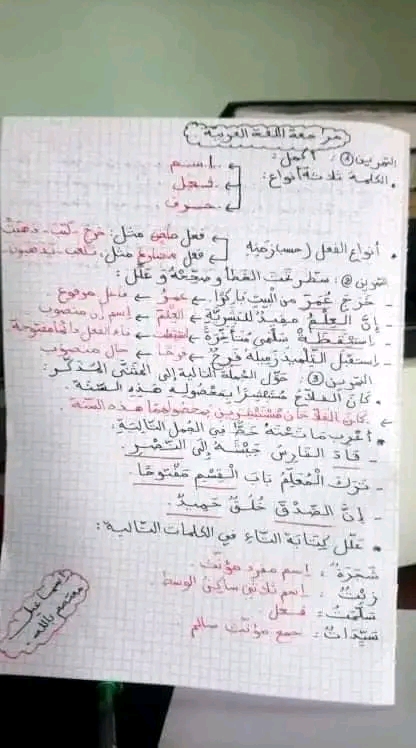 مراجعة اللغة العربية
التمرين ①: أكمل:
• الكلمة ثلاثة أنواع: ← اسم
← فعل
← حرف
• أنواع الفعل (حسب زمنه ← فعل ماض مثل: خرج - كتب - ذهبت
← فعل مضارع مثل: تلعب - تذهبون
التمرين ②: سطر تحت الخطأ و صححه و علل:
- خَرَجَ عُمَرَ من البيت باكرًا. ← عمرُ ← فاعل مرفوع
- إنَّ العِلْمُ مفيدٌ للبشرية ← العلمَ ← اسم إن منصوب
- استيقظة سلمى متأخرةً ← استيقظت ← تاء الفعل دائما مفتوحة
- استقبل التلميذ زميله فرحٌ ← فرحًا ← حال منصوب
التمرين ③: حوّل الجملة التالية إلى المثنى المذكر:
• كانَ الفلاحُ مُسْتَبْشِرًا بِمَحْصُولِهِ هَذِهِ السَّنَة.
- كانَ الفلاحانِ مُسْتَبْشِرَيْنِ بمحصولهما هذه السنة.
• أعرب ما تحته خط في الجمل التالية:
- قادَ الفارِسُ جَيْشَهُ إلى النَّصْرِ.
- تَرَكَ الْمُعَلِّمُ بابَ الْقِسْمِ مَفْتُوحًا.
- إنَّ الصِّدْقَ خُلُقٌ حَمِيدٌ
• علّل كتابة التاء في الكلمات التالية:
شَجَرَةٌ: اسم مفرد مؤنث.
زَيْتٌ: اسم ثلاثي ساكن الوسط
سَلَّمَتْ: فعل.
سَيِّدَاتٌ: جمع مؤنث سالم.
معتصم بالله